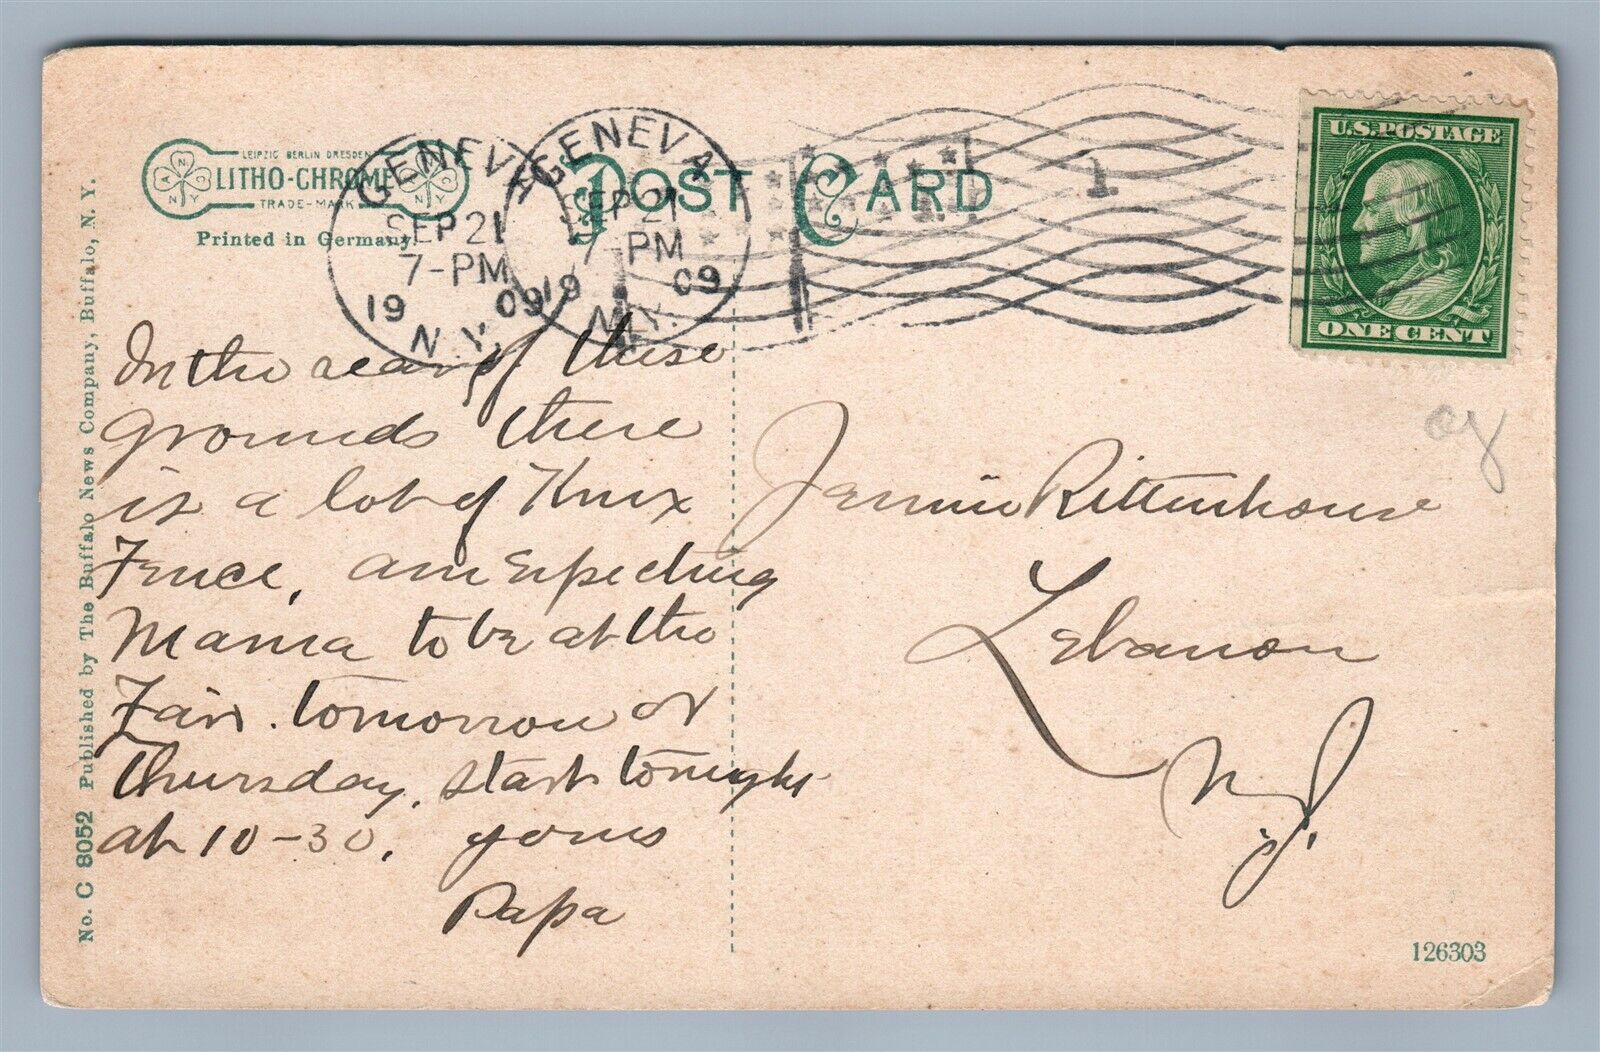 LEIPZIG BERLIN DRESDEN
LITHO-CHROME
TRADE-MARK
Printed in Germany.
GENEVA
SEP 21
7-PM
1909
N.Y.
GENEVA
SEP 21
7-PM
1909
N.Y.
POST CARD
1
U.S. POSTAGE
ONE CENT
In the rear of these
grounds there
is a lot of Knox
Fence, am Expecting
Mama to be at the
Fair tomorrow or
Thursday, start tonight
at 10-30. yours
Papa
Jennie Rittenhouse
Lebanon
N.J.
No. C 8052 Published by The Buffalo News Company, Buffalo, N. Y.
126303